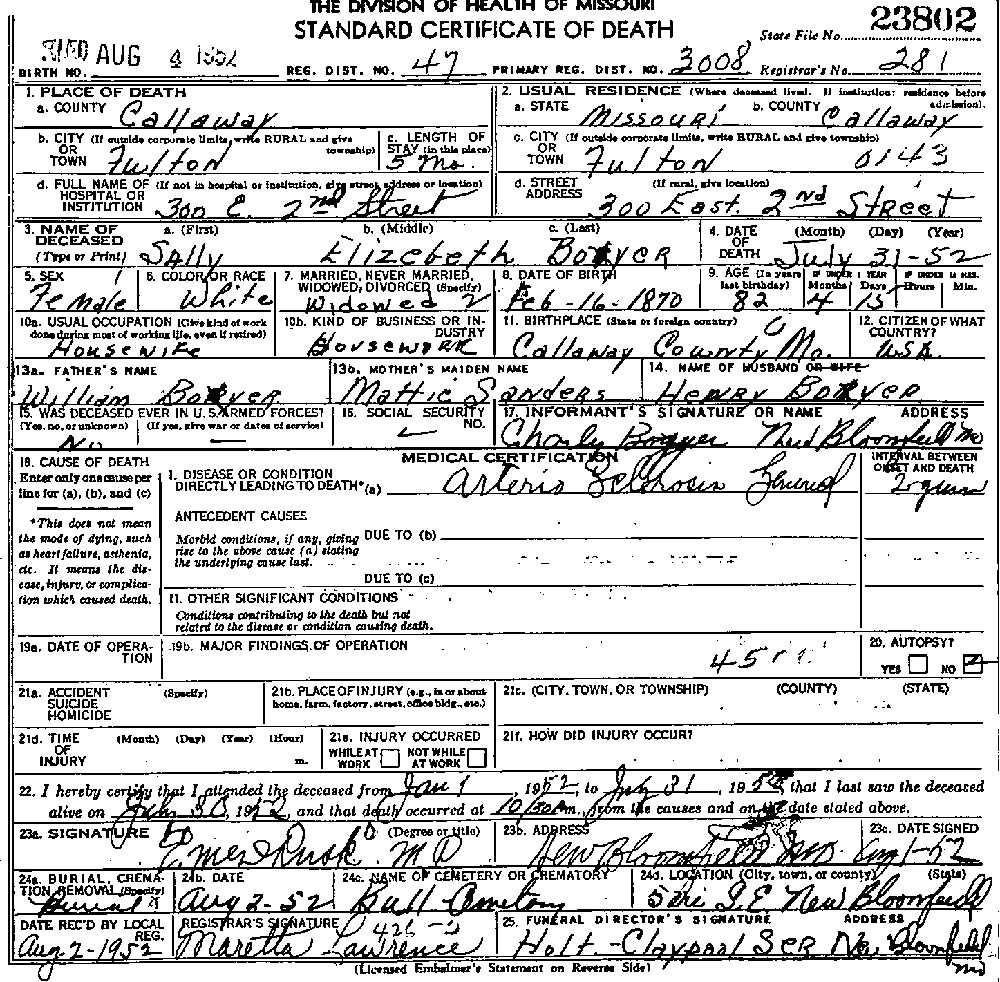 THE DIVISION OF HEALTH OF MISSOURI
STANDARD CERTIFICATE OF DEATH
State File No. 23802
FILED AUG 4 1952
BIRTH NO. REG. DIST. NO. 47 PRIMARY REG. DIST. NO. 3008 Registrar's No. 281
1. PLACE OF DEATH
a. COUNTY Callaway
b. CITY (If outside corporate limits, write RURAL and give township) OR TOWN Fulton
c. LENGTH OF STAY (in this place) 5 Mo.
d. FULL NAME OF (If not in hospital or institution, give street address or location) HOSPITAL OR INSTITUTION 300 E. 2nd Street
2. USUAL RESIDENCE (Where deceased lived. If institution: residence before admission).
a. STATE Missouri b. COUNTY Callaway
c. CITY (If outside corporate limits, write RURAL and give township) OR TOWN Fulton 0143
d. STREET ADDRESS (If rural, give location) 300 East. 2nd Street
3. NAME OF DECEASED (Type or Print) a. (First) Sally b. (Middle) Elizebeth c. (Last)
4. DATE OF DEATH (Month) (Day) (Year) July 31-52
5. SEX Female
6. COLOR OR RACE White
7. MARRIED, NEVER MARRIED, WIDOWED, DIVORCED (Specify) Widowed 2
8. DATE OF BIRTH Feb-16-1870
9. AGE (In years last birthday) 82 IF UNDER 1 YEAR Months 4 Days 15 IF UNDER 24 HRS. Hours Min.
10a. USUAL OCCUPATION (Give kind of work done during most of working life, even if retired) Housewife
10b. KIND OF BUSINESS OR INDUSTRY Housework
11. BIRTHPLACE (State or foreign country) Callaway County Mo.
12. CITIZEN OF WHAT COUNTRY? USA
13a. FATHER'S NAME William
13b. MOTHER'S MAIDEN NAME Mattie Sanders
14. NAME OF HUSBAND OR WIFE Henry
15. WAS DECEASED EVER IN U.S. ARMED FORCES? (Yes, no, or unknown) (If yes, give war or dates of service) No —
16. SOCIAL SECURITY NO.
17. INFORMANT'S SIGNATURE OR NAME ADDRESS Charly New Bloomfield Mo
MEDICAL CERTIFICATION
18. CAUSE OF DEATH
Enter only one cause per line for (a), (b), and (c)
*This does not mean the mode of dying, such as heart failure, asthenia, etc. It means the disease, injury, or complication which caused death.
I. DISEASE OR CONDITION DIRECTLY LEADING TO DEATH*(a) Arterio
INTERVAL BETWEEN ONSET AND DEATH
ANTECEDENT CAUSES
Morbid conditions, if any, giving rise to the above cause (a) stating the underlying cause last.
DUE TO (b)
DUE TO (c)
II. OTHER SIGNIFICANT CONDITIONS
Conditions contributing to the death but not related to the disease or condition causing death.
19a. DATE OF OPERATION
19b. MAJOR FINDINGS OF OPERATION
20. AUTOPSY? YES NO
21a. ACCIDENT SUICIDE HOMICIDE (Specify)
21b. PLACE OF INJURY (e.g., in or about home, farm, factory, street, office bldg., etc.)
21c. (CITY, TOWN, OR TOWNSHIP) (COUNTY) (STATE)
21d. TIME OF INJURY (Month) (Day) (Year) (Hour) m.
21e. INJURY OCCURRED WHILE AT WORK NOT WHILE AT WORK
21f. HOW DID INJURY OCCUR?
22. I hereby certify that I attended the deceased from Jan 1, 1952, to July 31, 1952, that I last saw the deceased
alive on July 30, 1952, and that death occurred at 10/30 Am., from the causes and on the date stated above.
23a. SIGNATURE (Degree or title) Rusk MD
23b. ADDRESS New Bloomfield Mo
23c. DATE SIGNED Aug 1-52
24a. BURIAL, CREMATION, REMOVAL (Specify) Burial
24b. DATE Aug 2-52
24c. NAME OF CEMETERY OR CREMATORY Bull Cemetery
24d. LOCATION (City, town, or county) (State) S.E New Bloomfield
DATE REC'D BY LOCAL REG. Aug 2-1952
REGISTRAR'S SIGNATURE Maretta Lawrence
25. FUNERAL DIRECTOR'S SIGNATURE ADDRESS Holt-Claypool Ser New Bloomfield Mo
(Licensed Embalmer's Statement on Reverse Side)